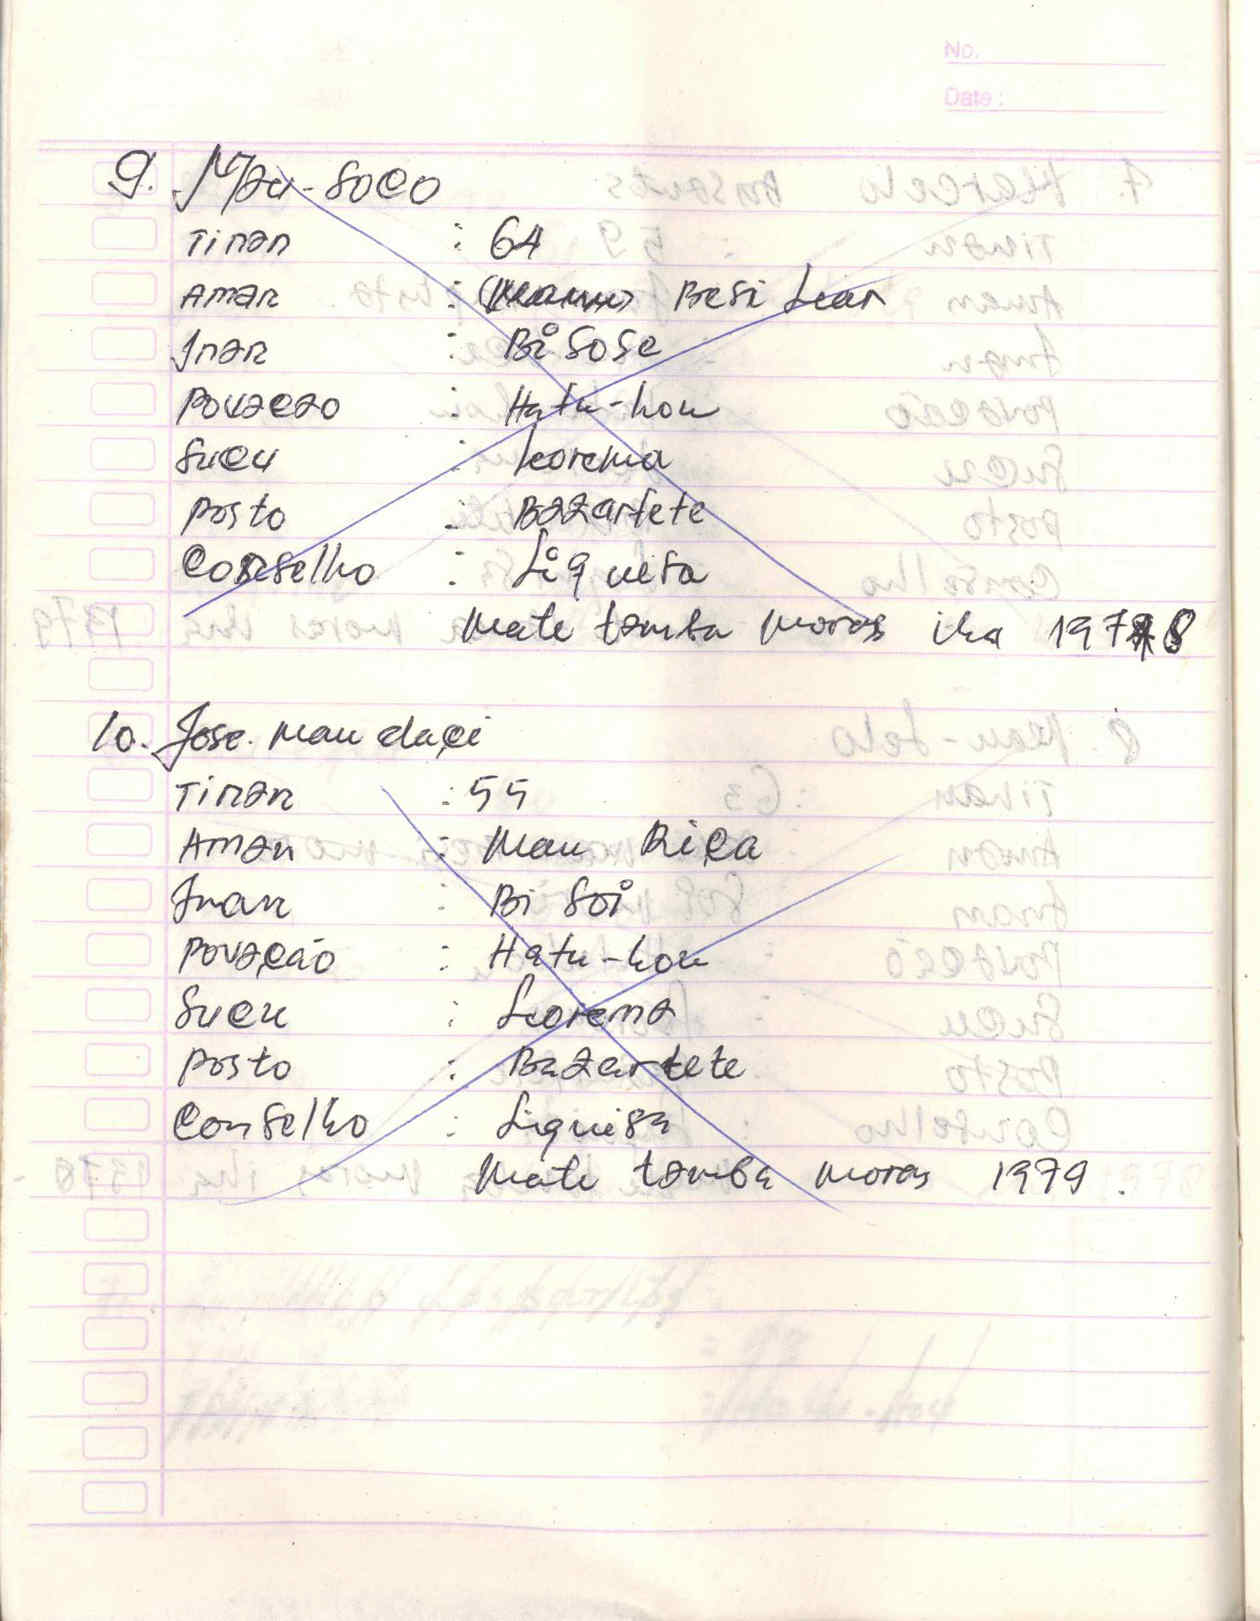 No.
Date:
9. Mau-Soco
Tinan : 64
Aman : Besi Lear
Inan : Bi Sose
Povacao : Hatu-hou
Sucu : Leorema
Posto : Bazartete
Conselho : Liquisa
Mate tamba moras iha 1978
10. Jose Mau daçi
Tinan : 55
Aman : Mau Rica
Inan : Bi Soi
Povação : Hatu-hou
Sucu : Leorema
Posto : Bazartete
Conselho : Liquisa
Mate tamba moras 1979.